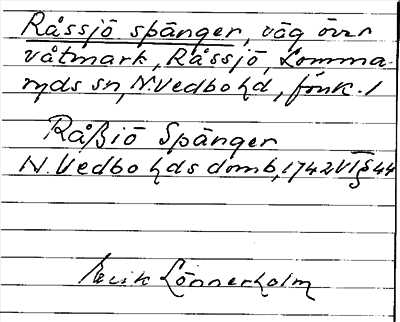 Råssjö spänger, väg över
våtmark, Råssjö, Lomma-
ryds sn, N. Vedbo hd, fönk. 1
Råßiö Spänger
N. Vedbo hds domb, 1742 VI § 44
Erik Lönnerholm